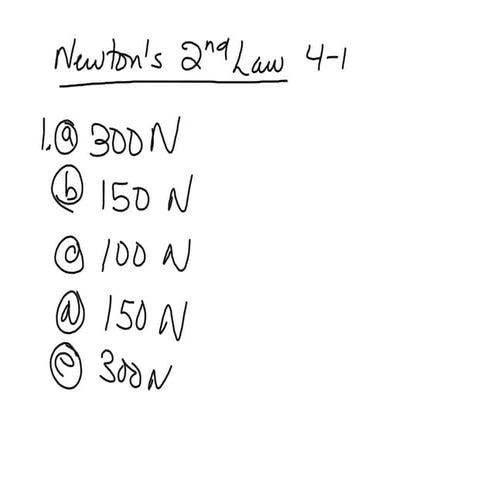 Newton's 2nd Law 4-1
1. a 300 N
b 150 N
c 100 N
d 150 N
e 300 N